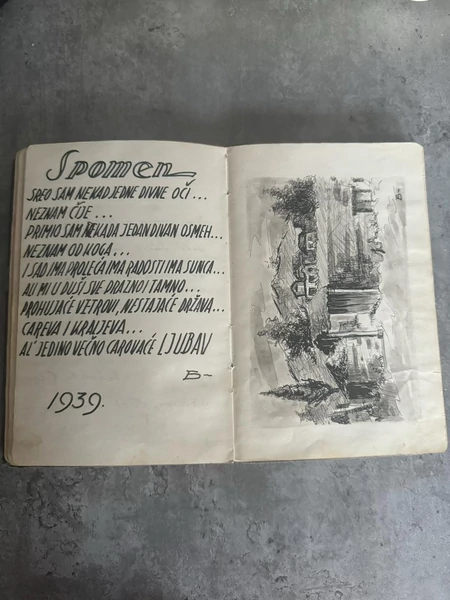 Spomen
SREO SAM NEKAD JEDNE DIVNE OČI...
NEZNAM ČIJE...
PRIMIO SAM NEKADA JEDAN DIVAN OSMEH...
NEZNAM OD KOGA...
I SAD IMA PROLEĆA IMA RADOSTI IMA SUNCA...
ALI MI U DUŠI SVE PRAZNO I TAMNO...
PROHUJAĆE VETROVI, NESTAJAĆE DRŽAVA...
CAREVA I KRALJEVA...
AL' JEDINO VEČNO CAROVAĆE LJUBAV
B-
1939.